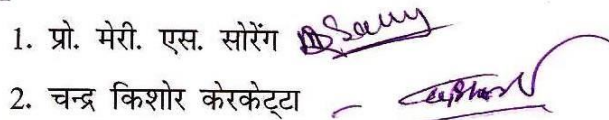 1. प्रो. मेरी. एस. सोरेंग
2. चन्द्र किशोर केरकेट्टा -